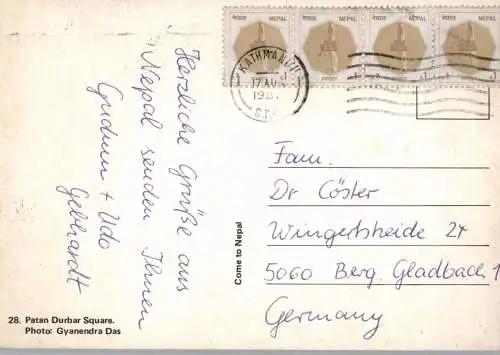 नेपाल NEPAL नेपाल NEPAL नेपाल NEPAL नेपाल NEPAL
KATHMANDU
17 AU
198
Herzliche Grüße aus
Nepal senden Ihnen
Gudrun + Udo
Gebhardt
Fam.
Dr Cöster
Wingertsheide 24
5060 Berg. Gladbach 1
Germany
Come to Nepal
28. Patan Durbar Square.
Photo: Gyanendra Das